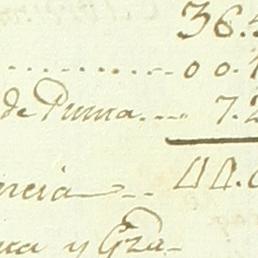 36.
........... 00.1
de Puma... 7.2
rcia .. 44.
ca y Gra-